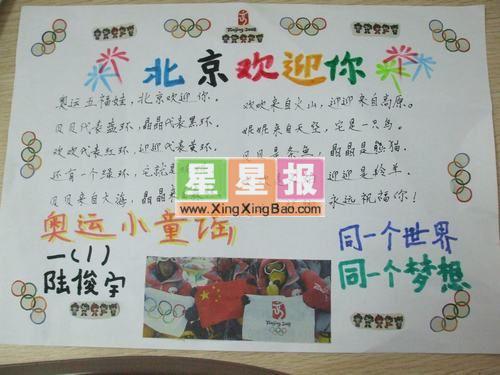 Beijing 2008
北京欢迎你
奥运五福娃，北京欢迎你。
贝贝代表蓝环，晶晶代表黑环。
欢欢代表红环，迎迎代表黄环。
还有一个绿环，它就是
贝贝来自大海，晶晶来
欢欢来自火山，迎迎来自高原。
妮妮来自天空，它是一只鸟。
贝贝是条鱼，晶晶是熊猫。
迎迎是羚羊。
永远祝福你！
星星报
www.XingXingBao.com
奥运小童谣
一(1)
陆俊宇
同一个世界
同一个梦想
Beijing 2008